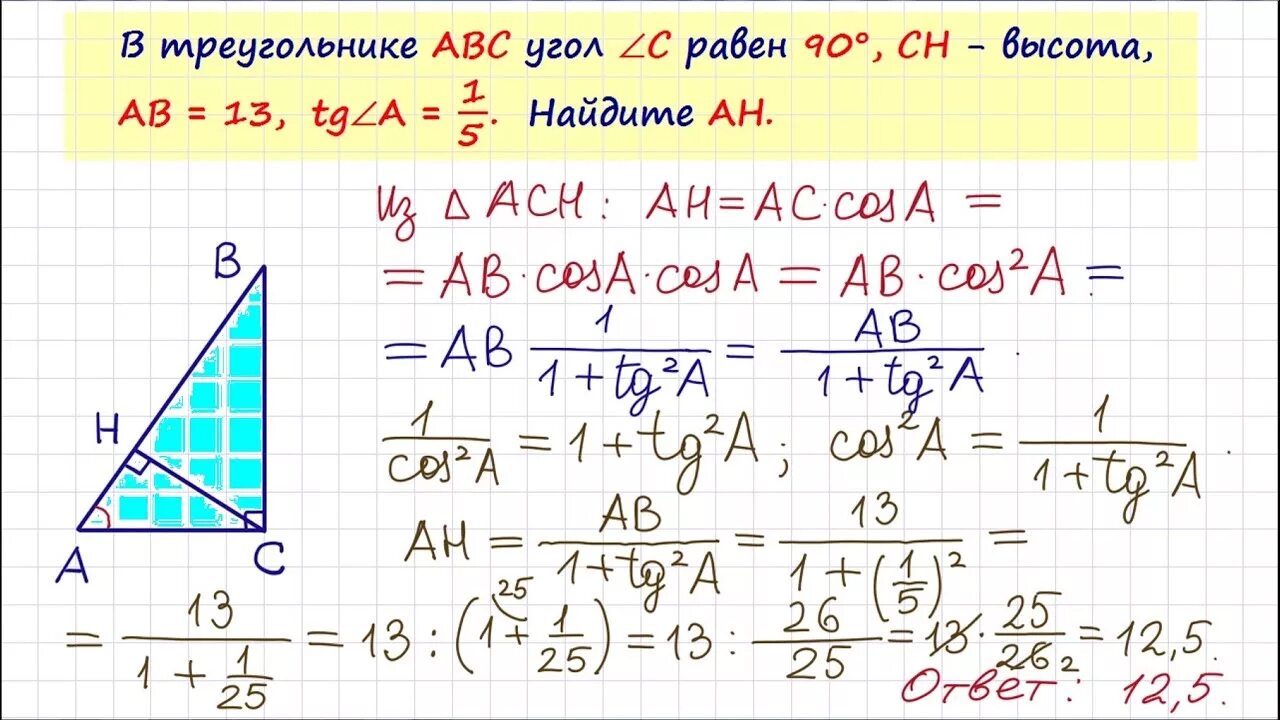 В треугольнике ABC угол ∠C равен 90°, CH - высота,
AB = 13, tg∠A = 1/5. Найдите AH.
Из △ ACH: AH = AC·cosA =
= AB·cosA·cosA = AB·cos²A =
= AB 1/(1+tg²A) = AB/(1+tg²A).
1/cos²A = 1+tg²A; cos²A = 1/(1+tg²A).
AH = AB/(1+tg²A) = 13/(1+(1/5)²) =
= 13/(1+1/25) = 13:(1 25 + 1/25) = 13: 26/25 = 13·25/26 2 = 12,5.
Ответ: 12,5.
B
H
A
C